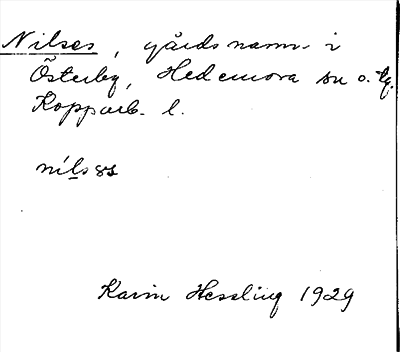 Nilses, gårdsnamn i
Österby, Hedemora sn o. tg.
Kopparb. l.
nils
Karin Hessling 1929